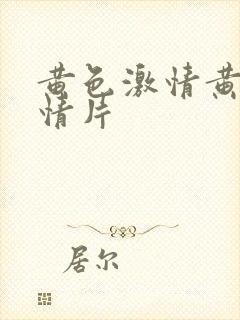 黄色激情黄
情片
居尔